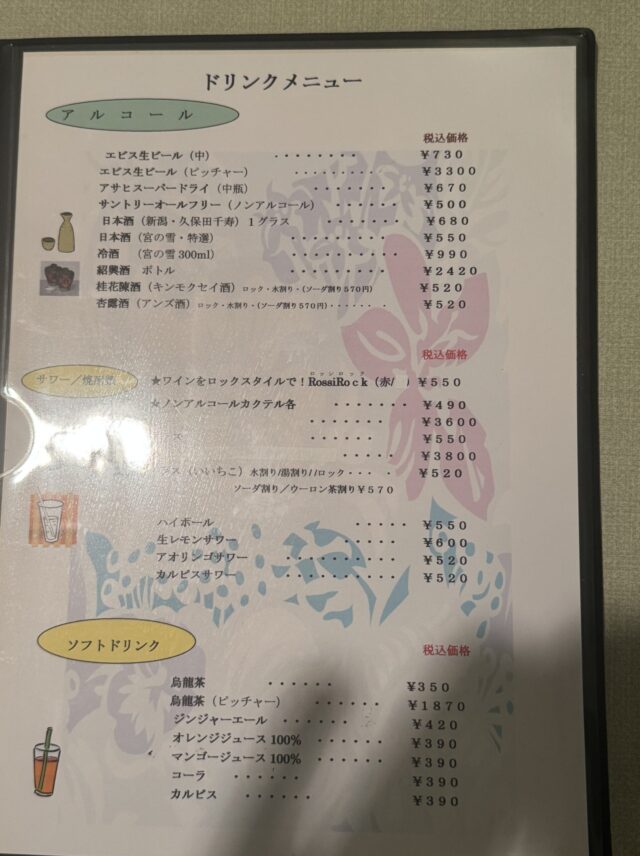 ドリンクメニュー
アルコール
税込価格
エビス生ビール（中） ・・・・・・・・ ￥730
エビス生ビール（ピッチャー） ・・・・・・・・・・ ￥3300
アサヒスーパードライ（中瓶） ・・・・・・・ ￥670
サントリーオールフリー（ノンアルコール） ・・・・・・・ ￥500
日本酒（新潟・久保田千寿）1グラス ・・・・・・・ ￥680
日本酒（宮の雪・特選） ・・・・・・・・・ ￥550
冷酒 （宮の雪300ml） ・・・・・・・・・・ ￥990
紹興酒 ボトル ・・・・・・・・・ ￥2420
桂花陳酒（キンモクセイ酒）ロック・水割り・（ソーダ割り570円）・・・・・ ￥520
杏露酒（アンズ酒）ロック・水割り・（ソーダ割り570円）・・・・・・・ ￥520
税込価格
サワー／焼酎類
★ワインをロックスタイルで！RossiRock（赤/ ） ￥550
ロッシロック
★ノンアルコールカクテル各 ・・・・・・・ ￥490
・・・・・・・ ￥3600
ス ・・・・・・ ￥550
・・・・ ￥3800
ラス（いいちこ）水割り/湯割り//ロック・・・・ ￥520
ソーダ割り／ウーロン茶割り￥570
ハイボール ・・・・・ ￥550
生レモンサワー ・・・・・ ￥600
アオリンゴサワー ・・・・・・・・・ ￥520
カルピスサワー ・・・・・・・・・ ￥520
税込価格
ソフトドリンク
烏龍茶 ・・・・・・ ￥350
烏龍茶（ピッチャー） ・・・・・・ ￥1870
ジンジャーエール ・・・・・・ ￥420
オレンジジュース100% ・・・・・・ ￥390
マンゴージュース100% ・・・・・・ ￥390
コーラ ・・・・・・ ￥390
カルピス ・・・・・・ ￥390